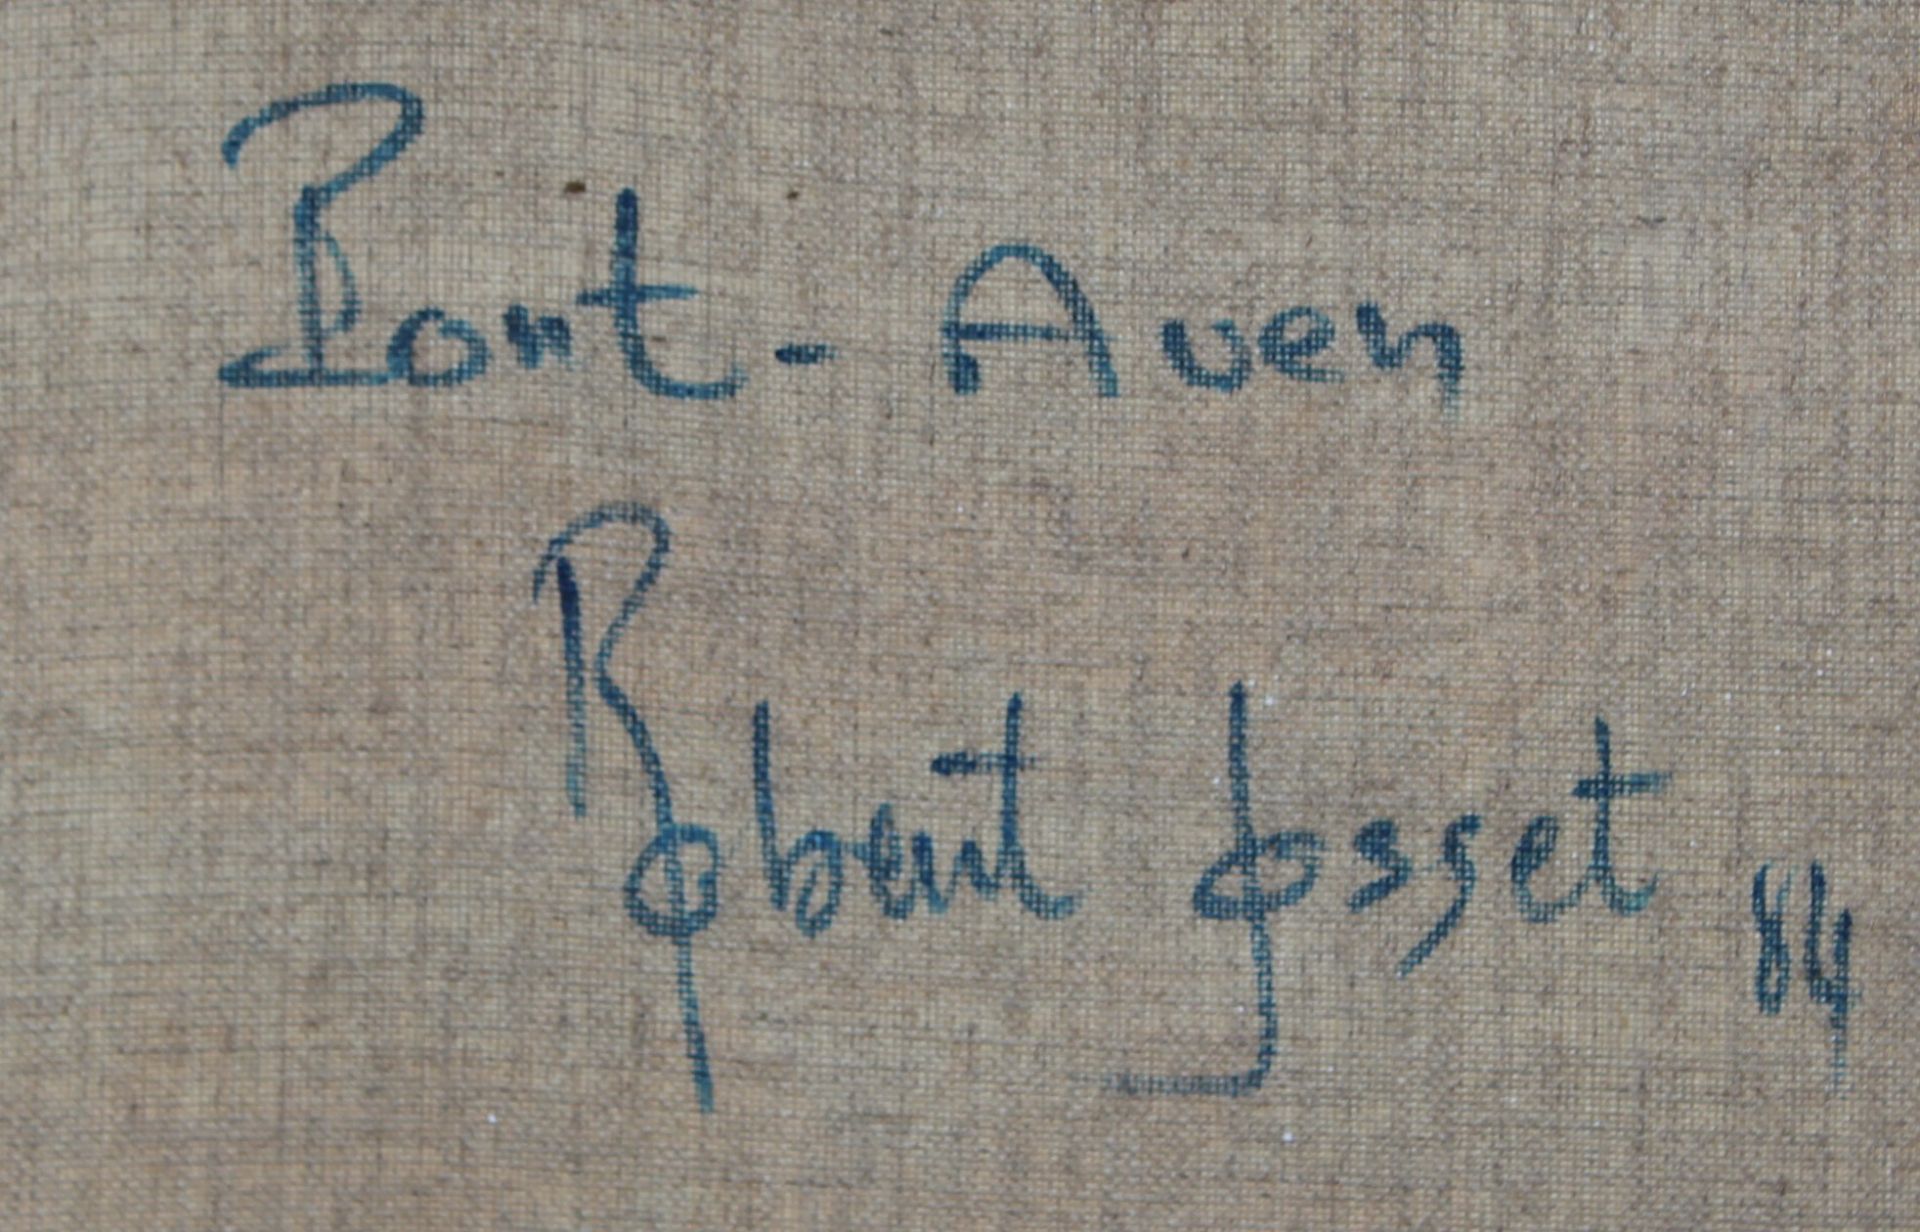 Pont-Aven
Robert Josset 84